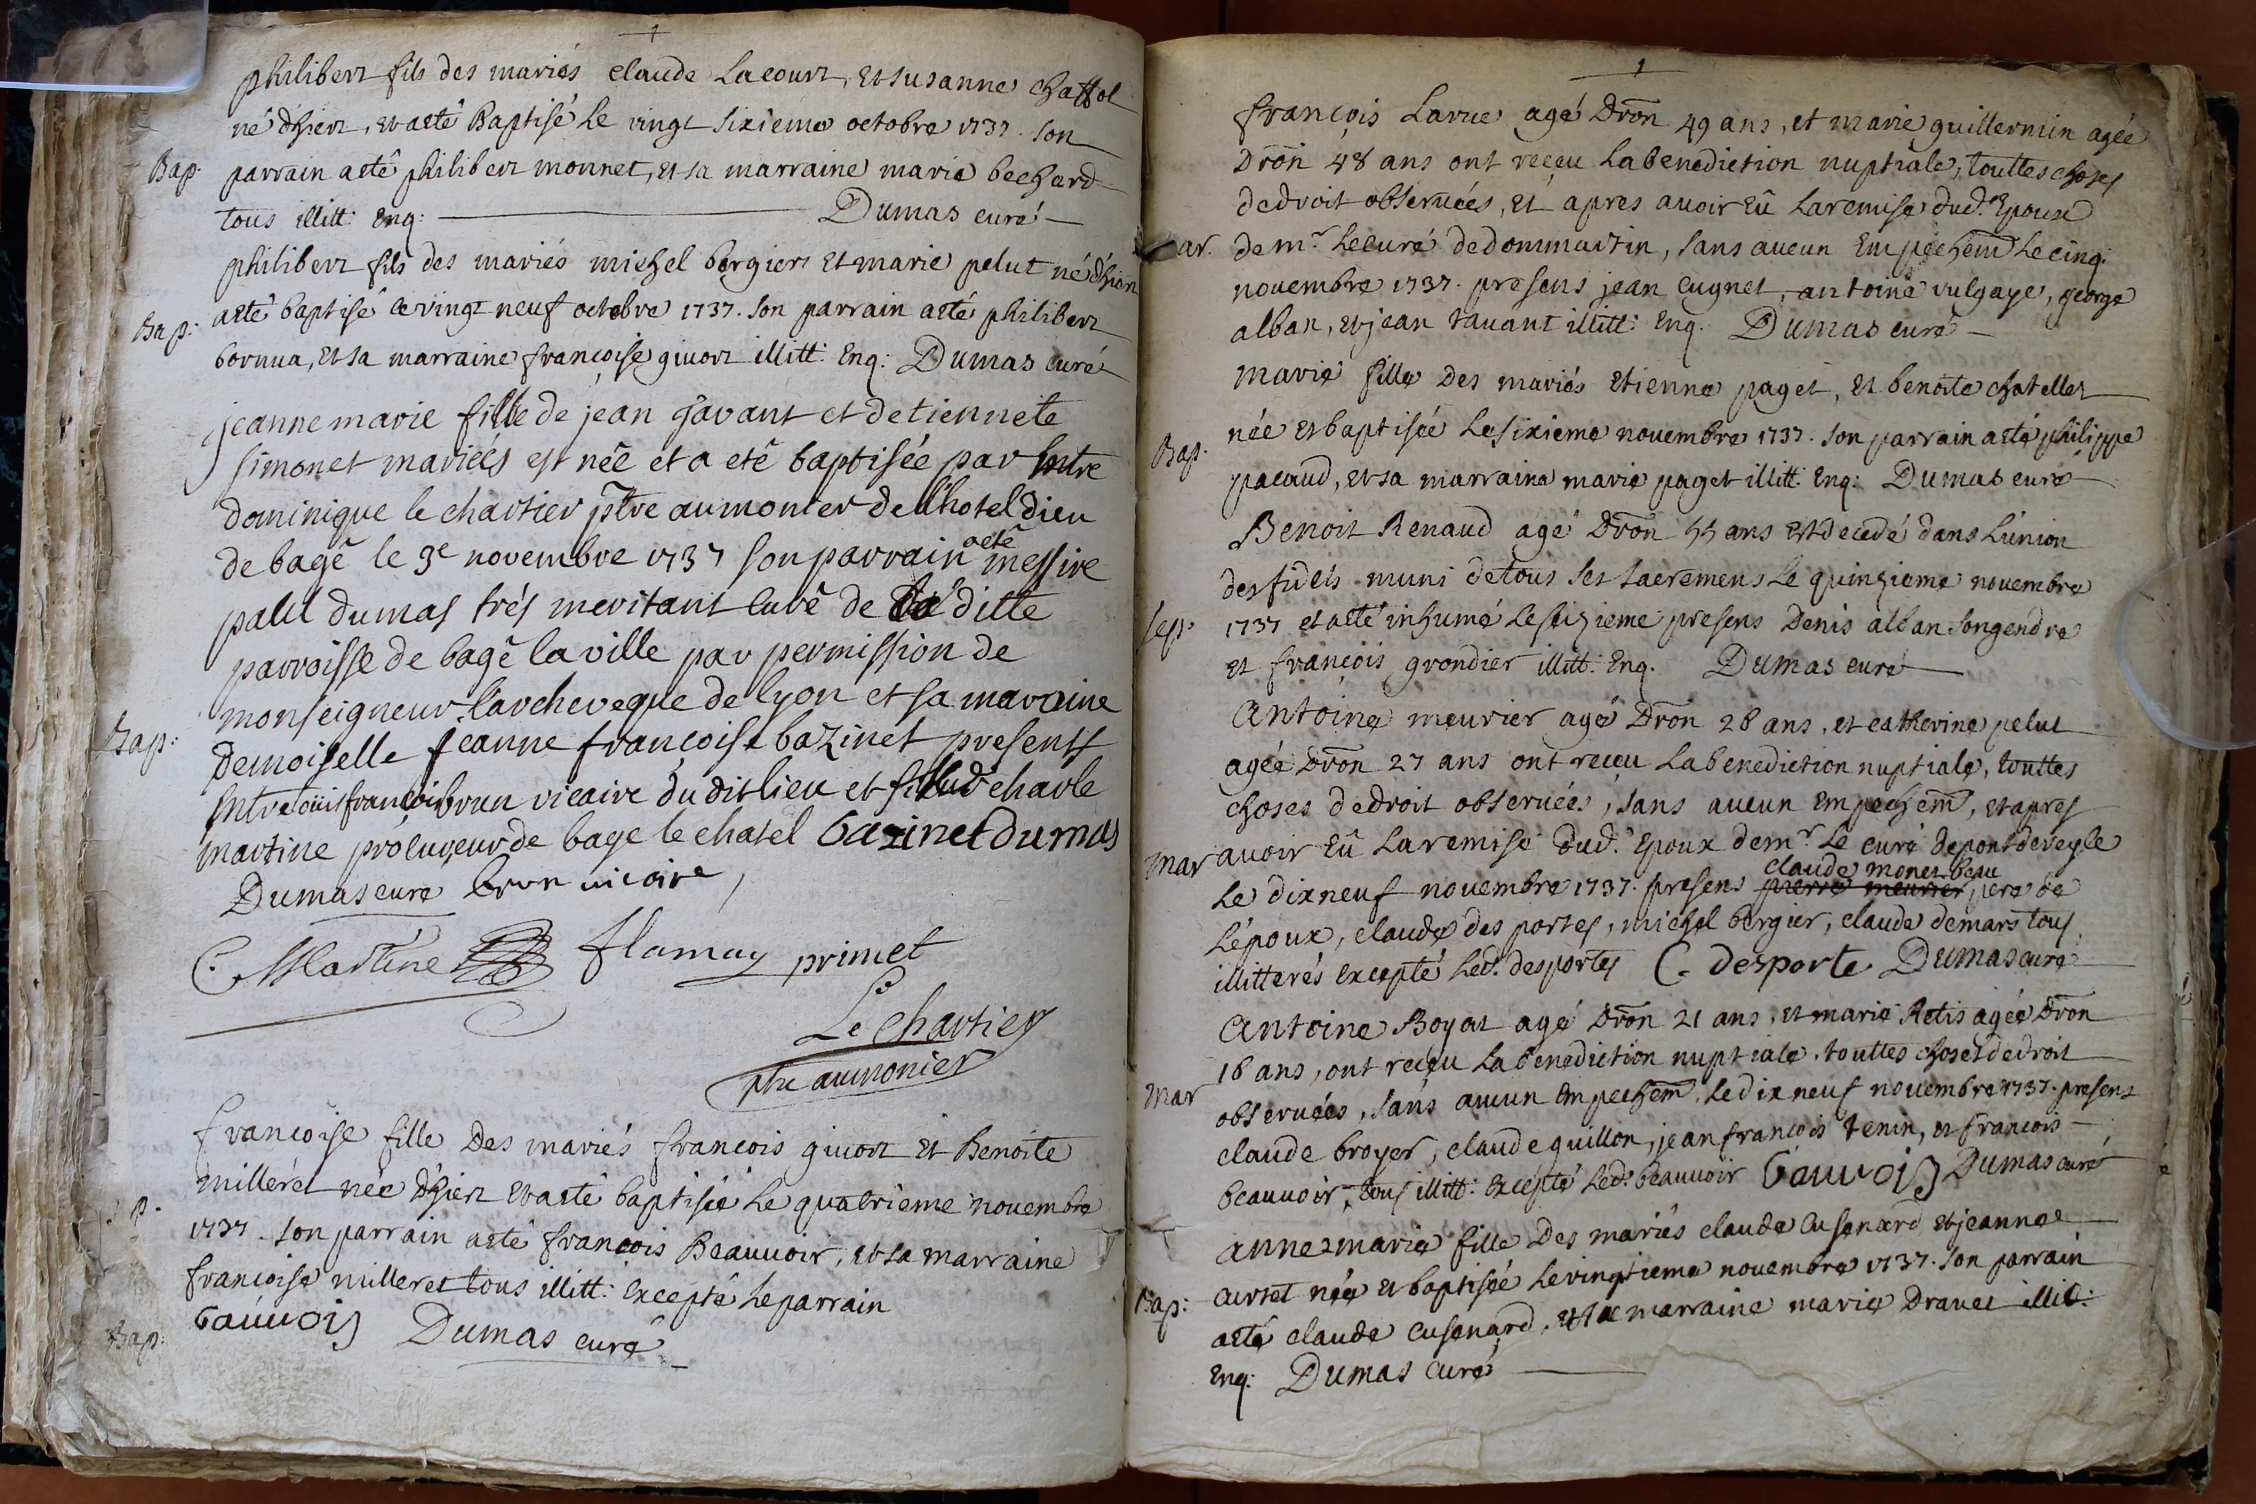 philibert fils des mariés claude Lacourt, et susanne chaffol
né d'hiert, et a eté Baptisé Le vingt sixieme octobre 1737. son
Bap. parrain a eté philibert monnet, et sa marraine marie bechard
tous illitt: Enq: Dumas curé
philibert fils des mariés michel bergiert et marie pelut né d'hiert
Bap: a eté baptisé le vingt neuf octobre 1737. son parrain a eté philibert
bornua, et sa marraine françoise givort illitt: Enq: Dumas curé
jeanne marie fille de jean tavant et detiennete
simonet mariéés est néé et a eté baptisée par
dominique le chartier ptre aumonier de lhotel dieu
de bagé le 3e novembre 1737 son parrain a eté messire
paul dumas trés meritant curé de la ditte
parroisse de bagé la ville par permission de
monseigneur l'archeveque de lyon et sa maraine
Bap: Demoiselle jeanne françoise bazinet presents
françois brun vicaire du dit lieu et charle
martine procureur de bage le chatel bazinet dumas
Dumas curé brun vicaire
C. Martine flamay primet
Le Chartier
ptre aumonier
françoise fille Des mariés françois givort et Benoite
milleret née d'hiert et a eté baptisée Le quatrieme novembre
1737. son parrain a eté françois Beauvoir, et sa marraine
françoise milleret tous illitt: Excepté Le parrain
Bap: bauvois Dumas curé
1
françois Larue agé Dron 49 ans, et marie guillermin agée
Dron 48 ans ont reçeu La benediction nuptiale, touttes choses
de droit observées, Et apres avoir Eû La remise dud. Epoux
ar. de mr. Le curé de dommartin, sans aucun Empechem Le cinq.
novembre 1737. presens jean cugnet, antoine vulgaye, george
alban, et jean tavant illitt: Enq. Dumas curé
marie fille Des mariés Etienne paget, Et benoite chatellet
Bap. née et baptisée Le sixieme novembre 1737. son parrain a eté philippe
pacaud, et sa marraine marie paget illitt: Enq: Dumas curé
Benoit Renaud agé Dron 55 ans est decedé dans L'union
des fidels muni de tous ses sacremens Le quinzieme novembre
sep. 1737 et a eté inhumé Le sizieme presens Denis alban son gendre
et françois grondier illitt: Enq. Dumas curé
Antoine meurier agé Dron 28 ans, et catherine pelut
agée Dron 27 ans ont reçeu La benediction nuptiale, touttes
choses de droit observées, sans aucun Empechem, et apres
mar avoir Eû La remise dud. Epoux de mr. Le curé de pontdeveyle
claude monet beau
Le dix neuf novembre 1737. presens pierre meurier pere de
L'époux, claude des portes, michel bergier, claude demars tous
illitterés Excepté Led. desportes C. desporte Dumas curé
Antoine Boyat agé Dron 21 ans, et marie Retis agée Dron
18 ans, ont reçeu La benediction nuptiale, touttes choses de droit
mar observées, sans aucun Empechem, Le dix neuf novembre 1737. presens
claude broyer, claude guillon, jean françois tenin, et françois
beauvoir, tous illitt: Excepté Led. beauvoir bauvois Dumas curé
anne marie fille Des mariés claude Cusenard et jeanne
Bap: curtet née et baptisée Le vingtieme novembre 1737. son parrain
a eté claude cusenard, et sa marraine marie Dravet illit:
Enq: Dumas curé